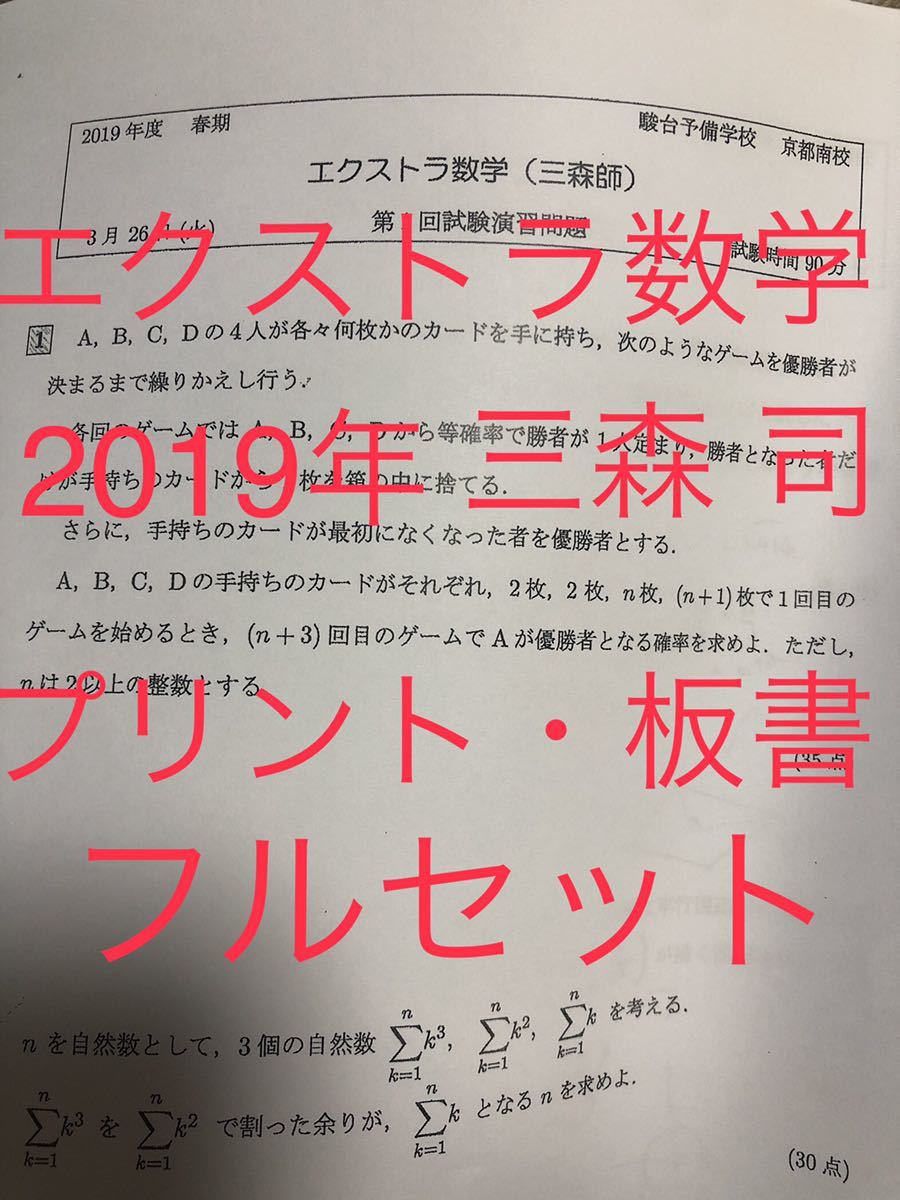 2019年度 春期
駿台予備学校 京都南校
エクストラ数学(三森師)
3月26日(火)
第1回試験演習問題
試験時間90分
エクストラ数学
1 A, B, C, Dの4人が各々何枚かのカードを手に持ち, 次のようなゲームを優勝者が
決まるまで繰りかえし行う.
各回のゲームではA, B, C, Dから等確率で勝者が1人定まり, 勝者となった者だ
けが手持ちのカードから1枚を箱の中に捨てる.
2019年 三森 司
さらに, 手持ちのカードが最初になくなった者を優勝者とする.
A, B, C, Dの手持ちのカードがそれぞれ, 2枚, 2枚, n枚, (n+1)枚で1回目の
ゲームを始めるとき, (n+3)回目のゲームでAが優勝者となる確率を求めよ. ただし,
nは2以上の整数とする.
プリント・板書
(35点)
フルセット
nを自然数として, 3個の自然数 ∑_{k=1}^{n} k³, ∑_{k=1}^{n} k², ∑_{k=1}^{n} k を考える.
∑_{k=1}^{n} k³ を ∑_{k=1}^{n} k² で割った余りが, ∑_{k=1}^{n} k となる n を求めよ.
(30点)